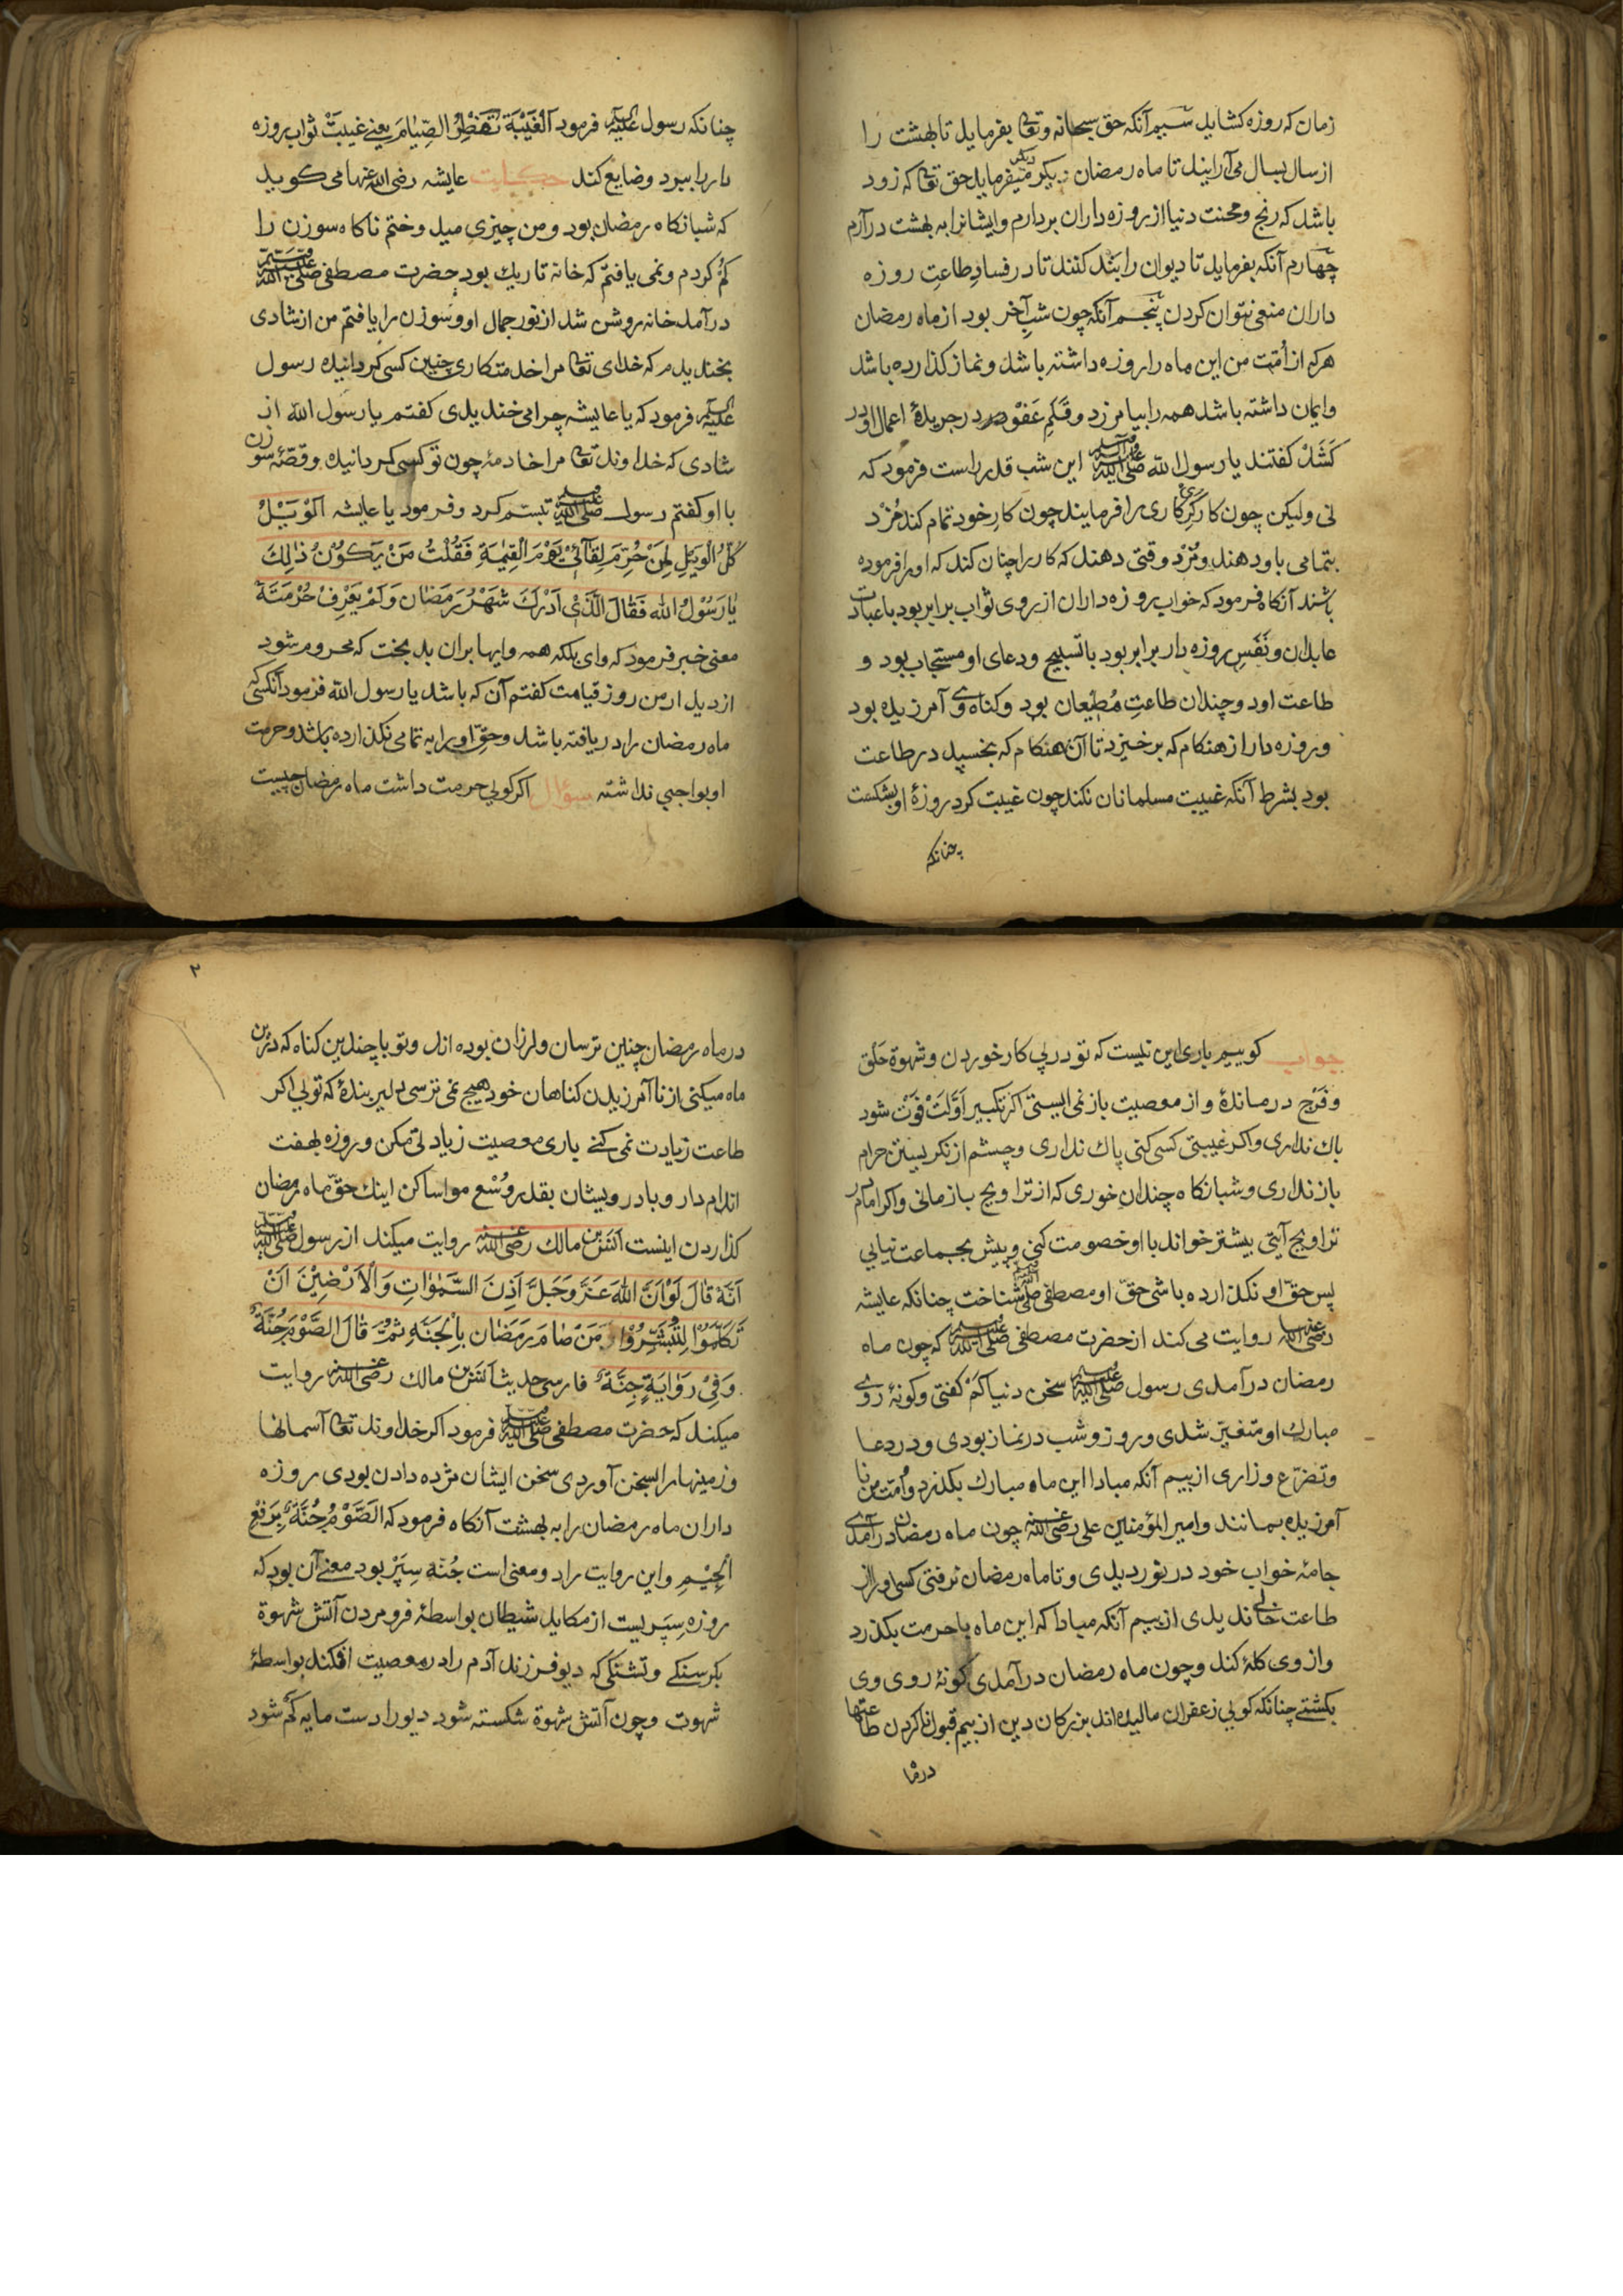 زمان که روزه کشاید سیم آنکه حق سبحانه وتعا بفرماید تا بهشت را
از سال بسال می آرایند تا ماه رمضان دیکر میفرماید حق تعا که زود
باشد که رنج ومحنت دنیا از روزه داران بردارم وایشانرا به بهشت درآرم
چهارم آنکه بفرماید تا دیوان را بند کنند تا در فساد طاعت روزه
داران منعی نتوان کردن پنجم آنکه چون شب آخر بود از ماه رمضان
هرکه از اُمّت من این ماه را روزه داشته باشد ونماز کذارده باشد
وایمان داشته باشد همه را بیامرزد وقلم عفو در جریدۀ اعمال او در
کَشَدْ کفتند یا رسول الله صلی الله علیه وسلم این شب قدر راست فرمود که
نی ولیکن چون کارکر کاری را فرمایند چون کار خود تمام کند مُزْد
بتمامی باو دهند ومُزْد وقتی دهند که کار را چنان کند که او را فرموده
باشند آنکاه فرمود که خواب روزه داران از روی ثواب برابر بود با عبادت
عابدان ونَفَسِ روزه دار برابر بود با تسبیح ودعای او مستجاب بود و
طاعت اود وچندان طاعتِ مُطیعان بود وکناه وی آمرزیده بود
وروزه دار از هنکام که برخیزد تا آن هنکام که بخسپد در طاعت
بود بشرط آنکه غیبت مسلمانان نکند چون غیبت کرد روزۀ او بشکست
چنانکه
چنانکه رسول علیه السلام فرمود اَلْغَیْبَةُ تُفَطِّرُ الصِّیٰامَ یعنی غیبت ثواب روزه
دار را ببرد وضایع کند حکایت عایشه رضی الله عنها می کوید
که شبانکاه رمضان بود ومن چیزی میدوختم ناکاه سوزن را
کم کردم ونمی یافتم که خانه تاریك بود حضرت مصطفی صلی الله علیه وسلم
درآمد خانه روشن شد از نور جمال او وسوزن را یافتم من از شادی
بخندیدم که خدای تعا مرا خدمتکاری چنین کسی کردانیده رسول
علیه السلام فرمود که یا عایشه چرا می خندیدی کفتم یا رسول الله از
شادی که خداوند تعا مرا خادمۀ چون تو کسی کردانیده وقصّۀ سوزن
با او کفتم رسول صلی الله علیه وسلم تبسّم کرد وفرمود یا عایشه اَلْوَیْلُ
کُلُّ الْوَیْلِ لِمَنْ حُرِمَ لِقَآئِیْ یَوْمَ الْقِیٰمَةِ فَقُلْتُ مَنْ یَکُوْنُ ذٰلِكَ
یٰا رَسُوْلَ الله فَقٰالَ الَّذِیْ اَدْرَكَ شَهْرَ رَمَضٰان وَلَمْ یَعْرِفْ حُرْمَتَهٗ
معنی خبر فرمود که وای بلکه همه وایها بران بد بخت که محروم شود
از دیدار من روز قیامت کفتم آن که باشد یا رسول الله فرمود آنکسی که
ماه رمضان را دریافته باشد وحقّ او را به تمامی نکذارده باشد وحرمت
او بواجبی نداشته سؤال اکر کویی حرمت داشت ماه رمضان چیست
جواب کوییم باری این نیست که تو در پی کار خوردن وشهوة حَلق
وفَرْج درماندۀ واز معصیت باز نمی ایستی اکر تکبیر اوّلت فَوْت شود
باك نداری واکر غیبتی کسی کنی پاك نداری وچشم از نکریستن حرام
باز نداری وشبانکاه چندان خوری که از تراویح بازمانی واکر امام در
تراویح آیتی بیشتر خواند با او خصومت کنی وپیش بجماعت نیایی
پس حقّ او نکذارده باشی حقّ او مصطفی صلی الله علیه وسلم شناخت چنانکه عایشه
رضی الله عنها روایت می کند از حضرت مصطفی صلی الله علیه وسلم که چون ماه
رمضان درآمدی رسول صلی الله علیه وسلم سخن دنیا کم کفتی وکونۀ روی
مبارك او متغیّر شدی وروز وشب در نماز بودی ودر دعا
وتضرّع وزاری از بیم آنکه مبادا این ماه مبارك بکذرد واُمّت من نا
آمرزیده بمانند وامیر المؤمنین علی رضی الله عنه چون ماه رمضان درآمدی
جامۀ خواب خود در نوردیدی وتا ماه رمضان نرفتی کسی او را از
طاعت خالی ندیدی از بیم آنکه مبادا که این ماه با حرمت بکذرد
واز وی کلۀ کند وچون ماه رمضان درآمدی کونۀ روی وی
بکشتی چنانکه کویی زعفران مالیده اند بزرکان دین از بیم قبول ناکردن طاعتها
در ما
۲
در ماه رمضان چنین ترسان ولرزان بوده اند وتو با چندین کناه که درین
ماه میکنی از نا آمرزیدن کناهان خود هیچ نمی ترسی دلیر بندۀ که تویی اکر
طاعت زیادت نمی کنی باری معصیت زیادتی مکن وروزه بهفت
اندام دار وبا درویشان بقدر وُسْع مواسا کن اینك حقّ ماه رمضان
کذاردن اینست اَنَس بن مالك رضی الله عنه روایت میکند از رسول صلی الله علیه وسلم
اَنَّهٗ قٰالَ لَوْ اَنَّ اللهَ عَزَّ وَجَلَّ اَذِنَ السَّمٰوٰاتِ وَالْاَرْضِیْنَ اَنْ
تَکَلَّمُوْا لِتُبَشِّرُوْا مَنْ صٰامَ رَمَضٰان بِالْجَنَّةِ ثُمَّ قٰالَ الصَّوْمُ جُنَّةٌ
وَفِیْ رَوٰایَةٍ جِنَّةٌ فارسی حدیث انس بن مالك رضی الله عنه روایت
میکند که حضرت مصطفی صلی الله علیه وسلم فرمود اکر خداوند تعا آسمانها
وزمینها را بسخن آوردی سخن ایشان مژده دادن بودی روزه
داران ماه رمضان را به بهشت آنکاه فرمود که اَلصَّوْمُ جُنَّةٌ بِرَفْعِ
الْجِیْمِ واین روایت را دو معنی است جُنّه سِپَرْ بود معنی آن بود که
روزه سِپَریست از مکاید شیطان بواسطۀ فرو مردن آتش شهوة
بکرسنکی وتشنکی که دیو فرزند آدم را در معصیت افکند بواسطۀ
شهوت وچون آتش شهوة شکسته شود دیو را دست مایه کم شود